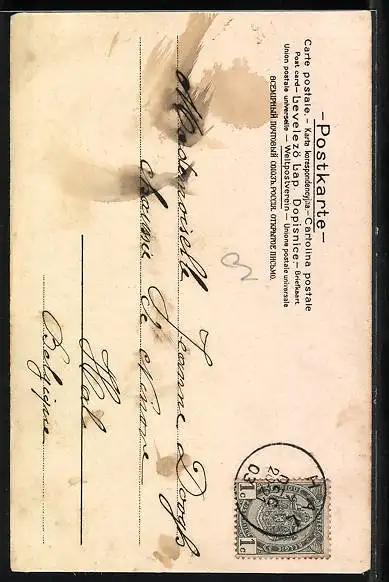 -Postkarte-
Carte postale. - Karta korespondencyjna - Cartolina postale
Post card - Levelező Lap Dopisnice - Briefkaart
Union postale universelle - Weltpostverein - Unione postale universale
ВСЕМІРНЫЙ ПОЧТОВЫЙ СОЮЗЪ РОССІЯ. ОТКРЫТОЕ ПИСЬМО.
HAL
DEC
03
1c 1c
Mademoiselle Jeanne
Chaussée de
Hal
Belgique